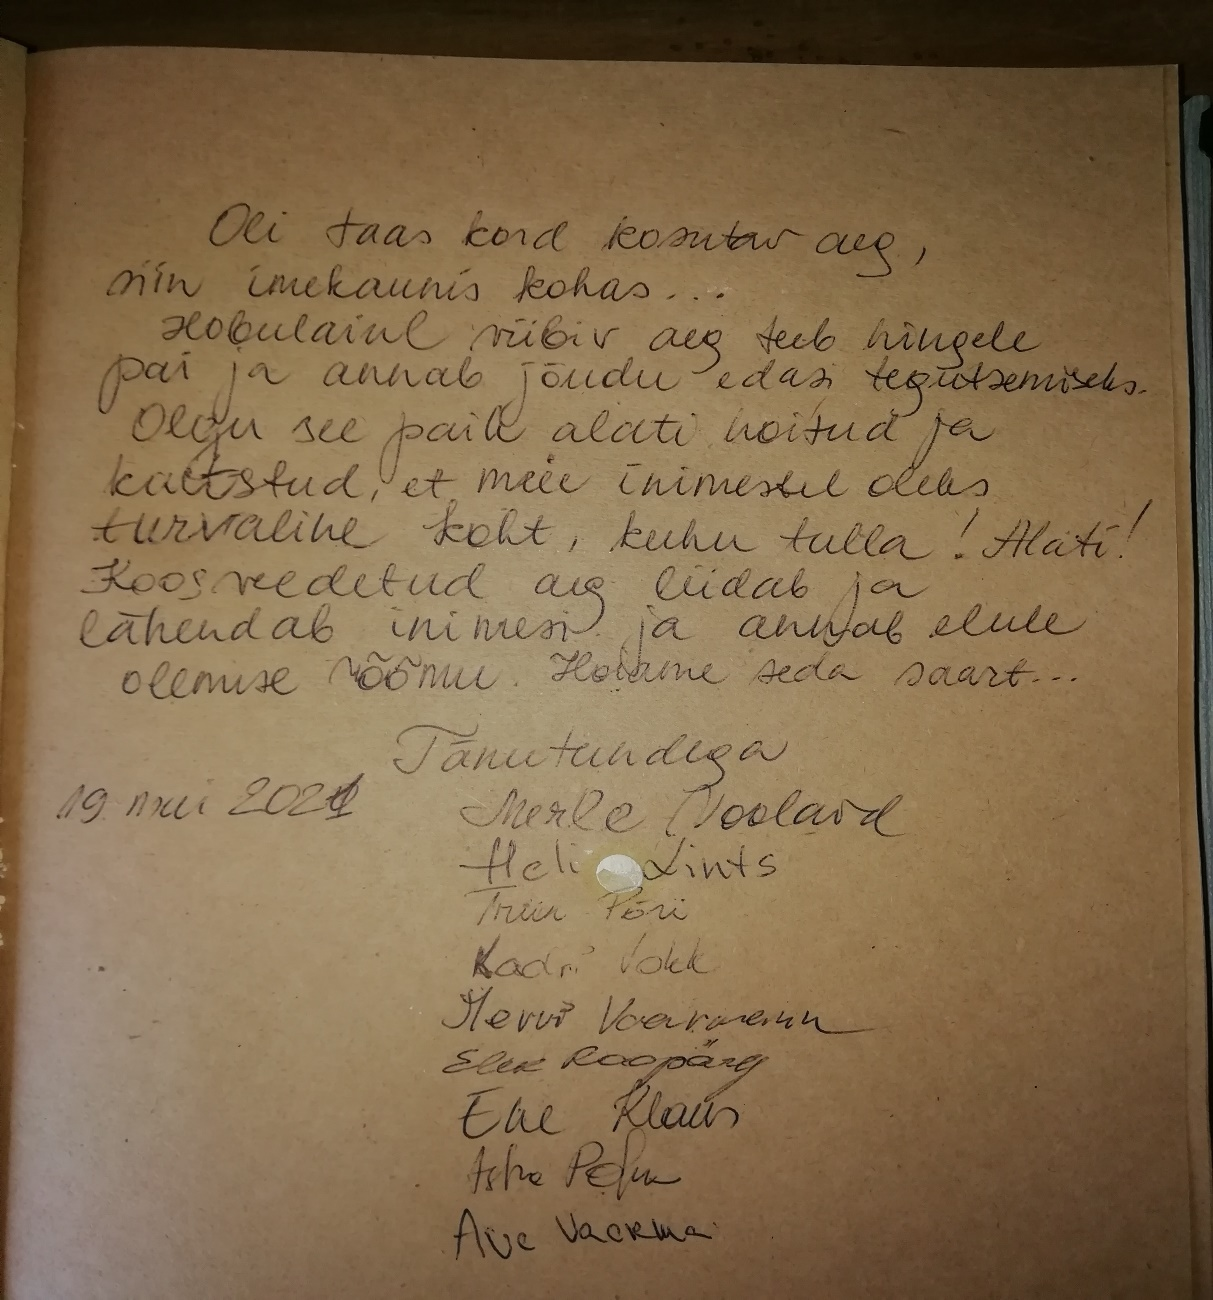 Oli taas kord kosutav aeg,
siin imekaunis kohas...
Hobulaiul viibiv aeg teeb hingele
pai ja annab jõudu edasi tegutsemiseks.
Olgu see paik alati hoitud ja
kaitstud, et meie inimestel oleks
turvaline koht, kuhu tulla! Alati!
Koosveedetud aeg liidab ja
lähendab inimesi ja annab elule
olemise rõõmu. Hoiame seda saart...
Tänutundega
19. mai 2021
Merle Noolaid
Heli Lints
Triin Põri
Kadri Vokk
Mervi Vaarmann
Raopärg
Ene Klaus
Ave